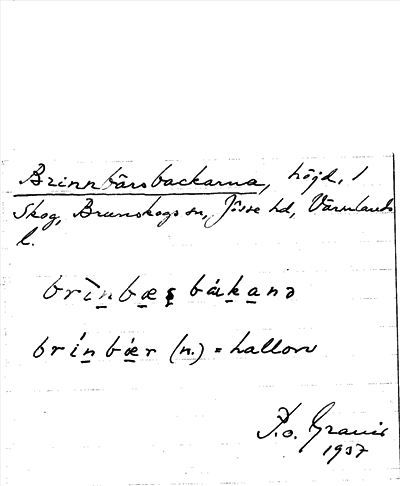 Brinnbärsbackarna, höjd, 1
Skog, Brunskogs sn, Jösse hd, Värmlands
l.
brìnbæș bákanə
brínbǽr (n.) = hallon
P.o. Granis
1937